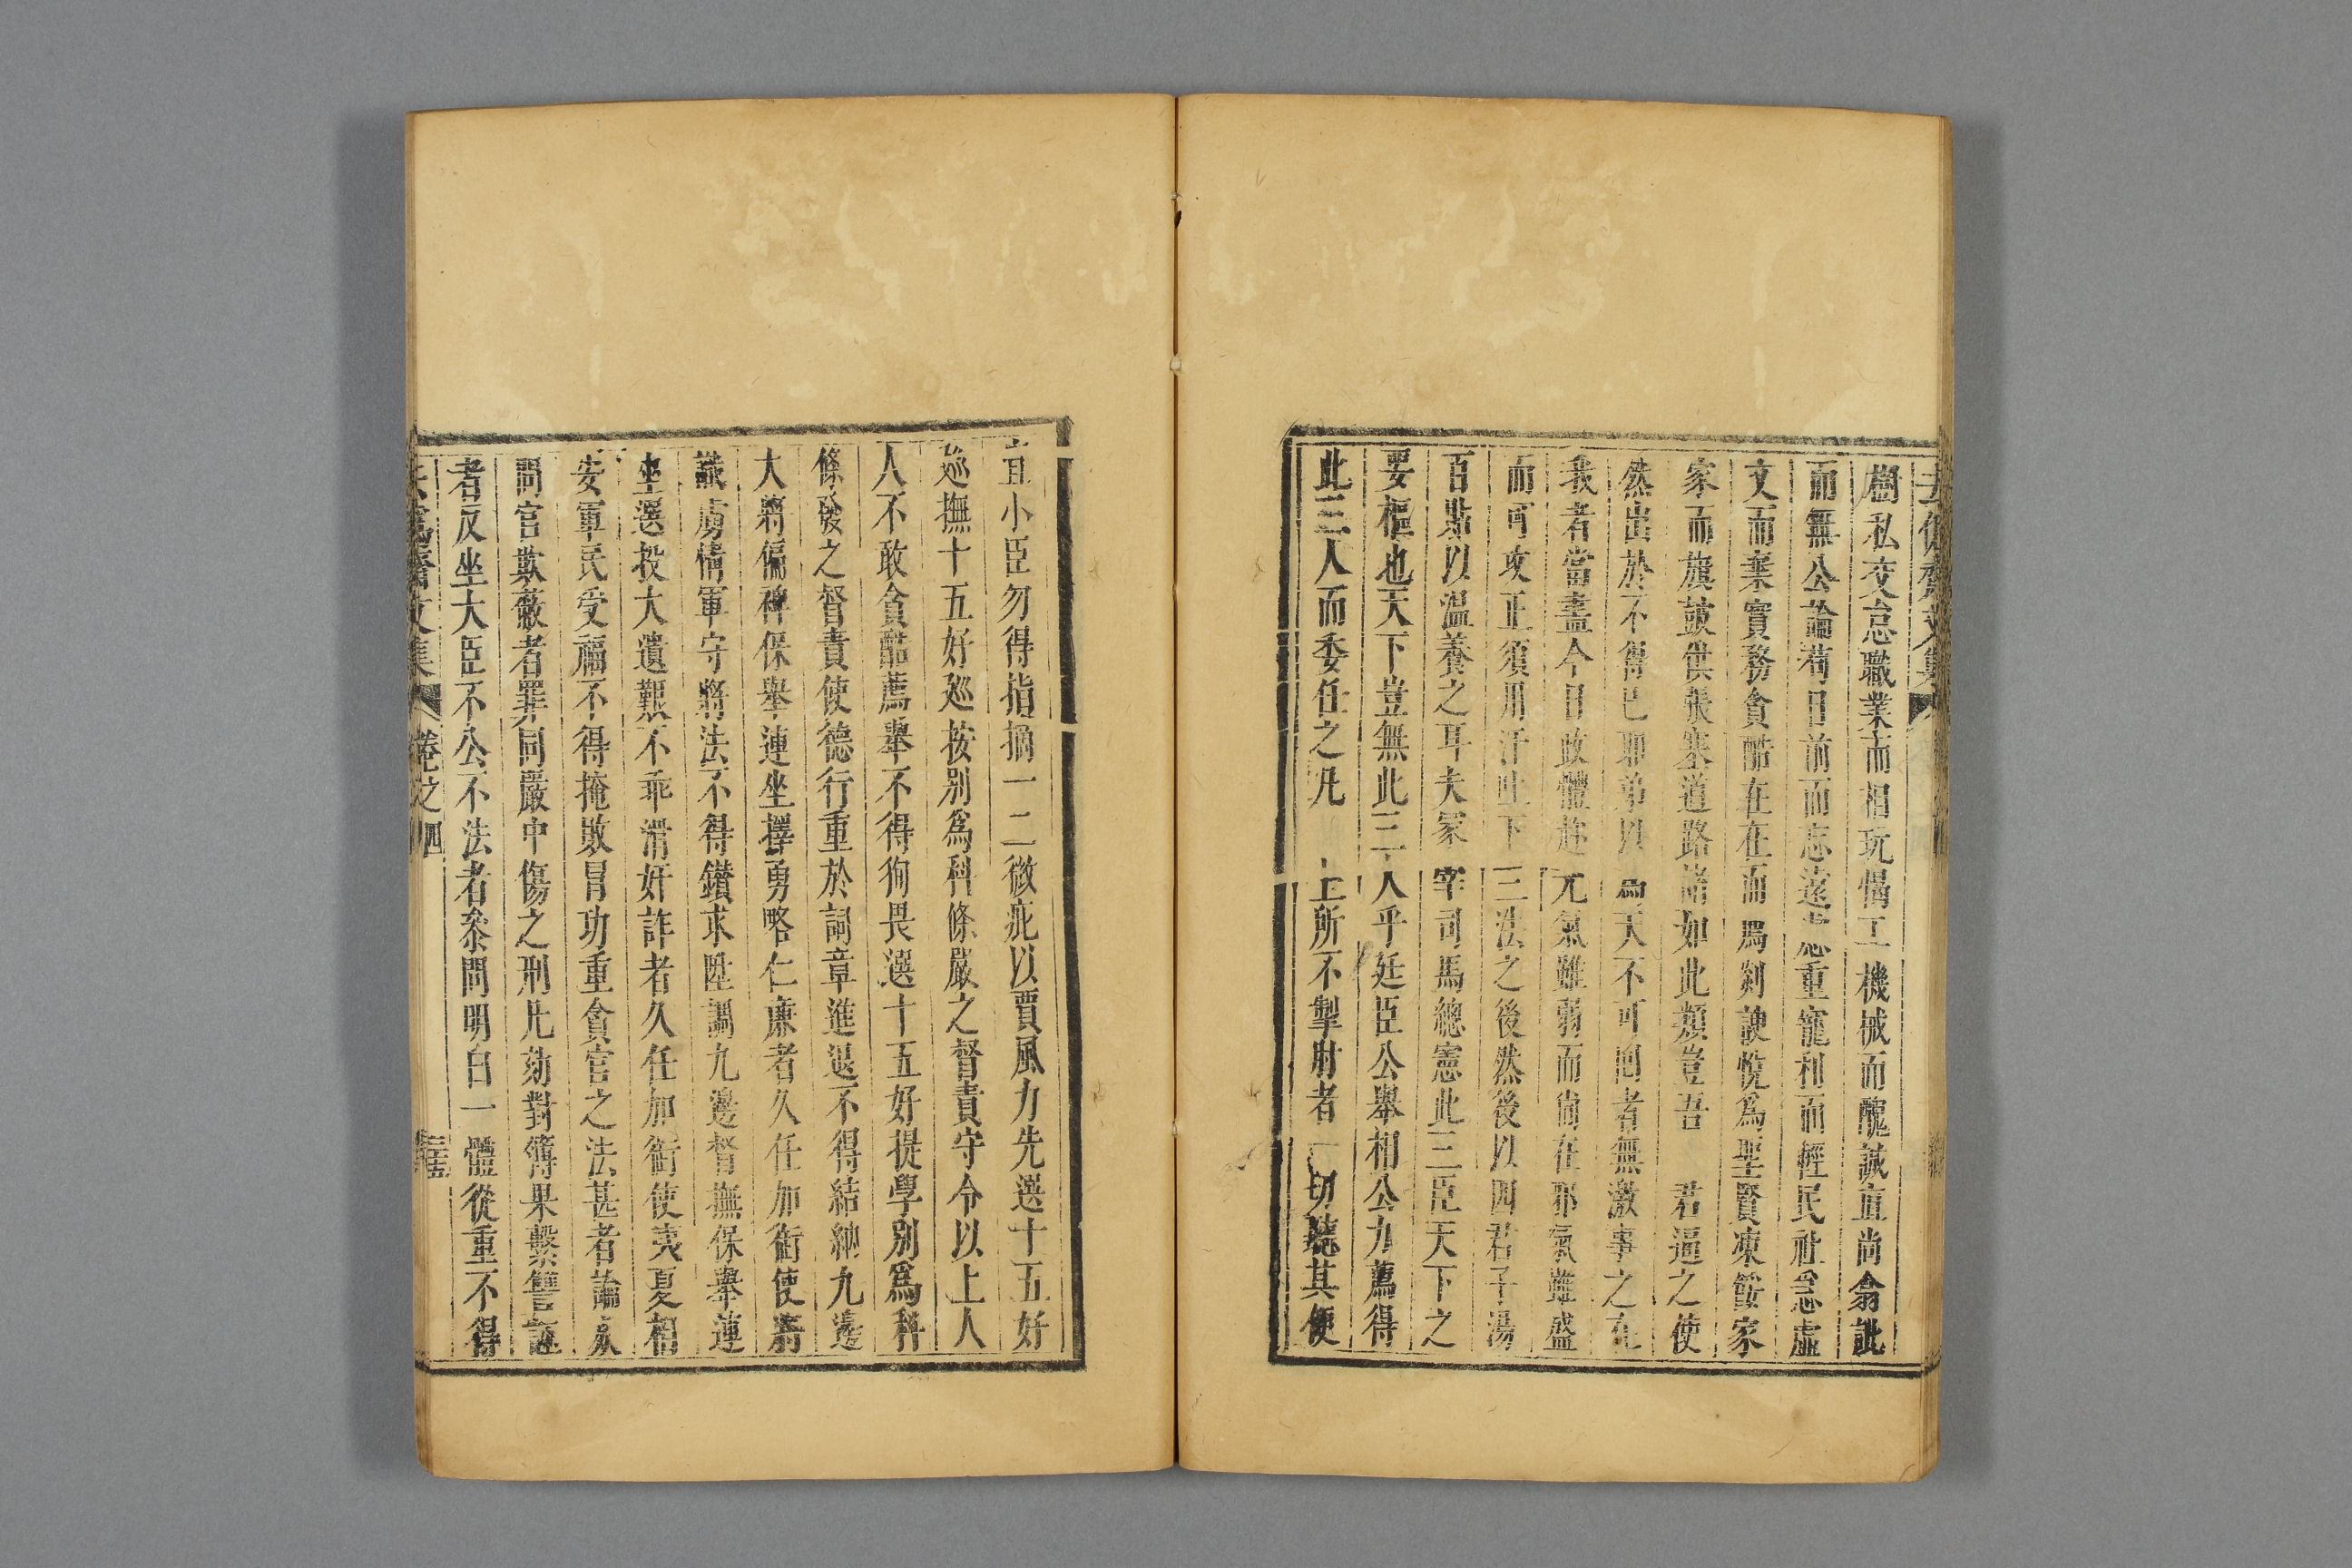 去偽齋文集
樹私交怠職業而相玩愒工機械而醜誠直尚翕訿
而無公論苟目前而忘遠慮重寵利而輕民社急虛
文而棄實務貪酷在在而爲剡諛悅爲聖賢凍餒家
家而旗鼓供張塞道路諸如此類豈吾 君逼之使
然出於不得已耶弟以爲天不可囘者無激事之在
我者當盡今日政體越元氣雖弱而尚在邪氣雖盛
而可攻正須用汗吐下三法之後然後以四君子湯
百點以溫養之耳夫冢宰司馬總憲此三臣天下之
要樞也天下豈無此三人乎廷臣公舉相公力薦得
此三人而委任之凡 上所不掣肘者一切聽其便
宜小臣勿得指摘一二微疵以賈風力先選十五好
廵撫十五好廵按別爲科條嚴之督責守令以上人
人不敢貪酷薦舉不得狥畏選十五好提學別爲科
條發之督責使德行重於詞章進退不得結納九邊
大將偏裨保舉連坐擇勇略仁廉者久任加銜使將
識虜情軍守將法不得鑽求陞調九邊督撫保舉連
坐選投大遺艱不乖滑奸詐者久任加銜使夷夏相
安軍民受福不得掩敗冒功重貪官之法甚者論死
問官欺蔽者罪同嚴中傷之刑凡劾對簿果繫讐誣
者反坐大臣不公不法者叅問明白一體從重不得
去偽齋文集 卷之四 三五